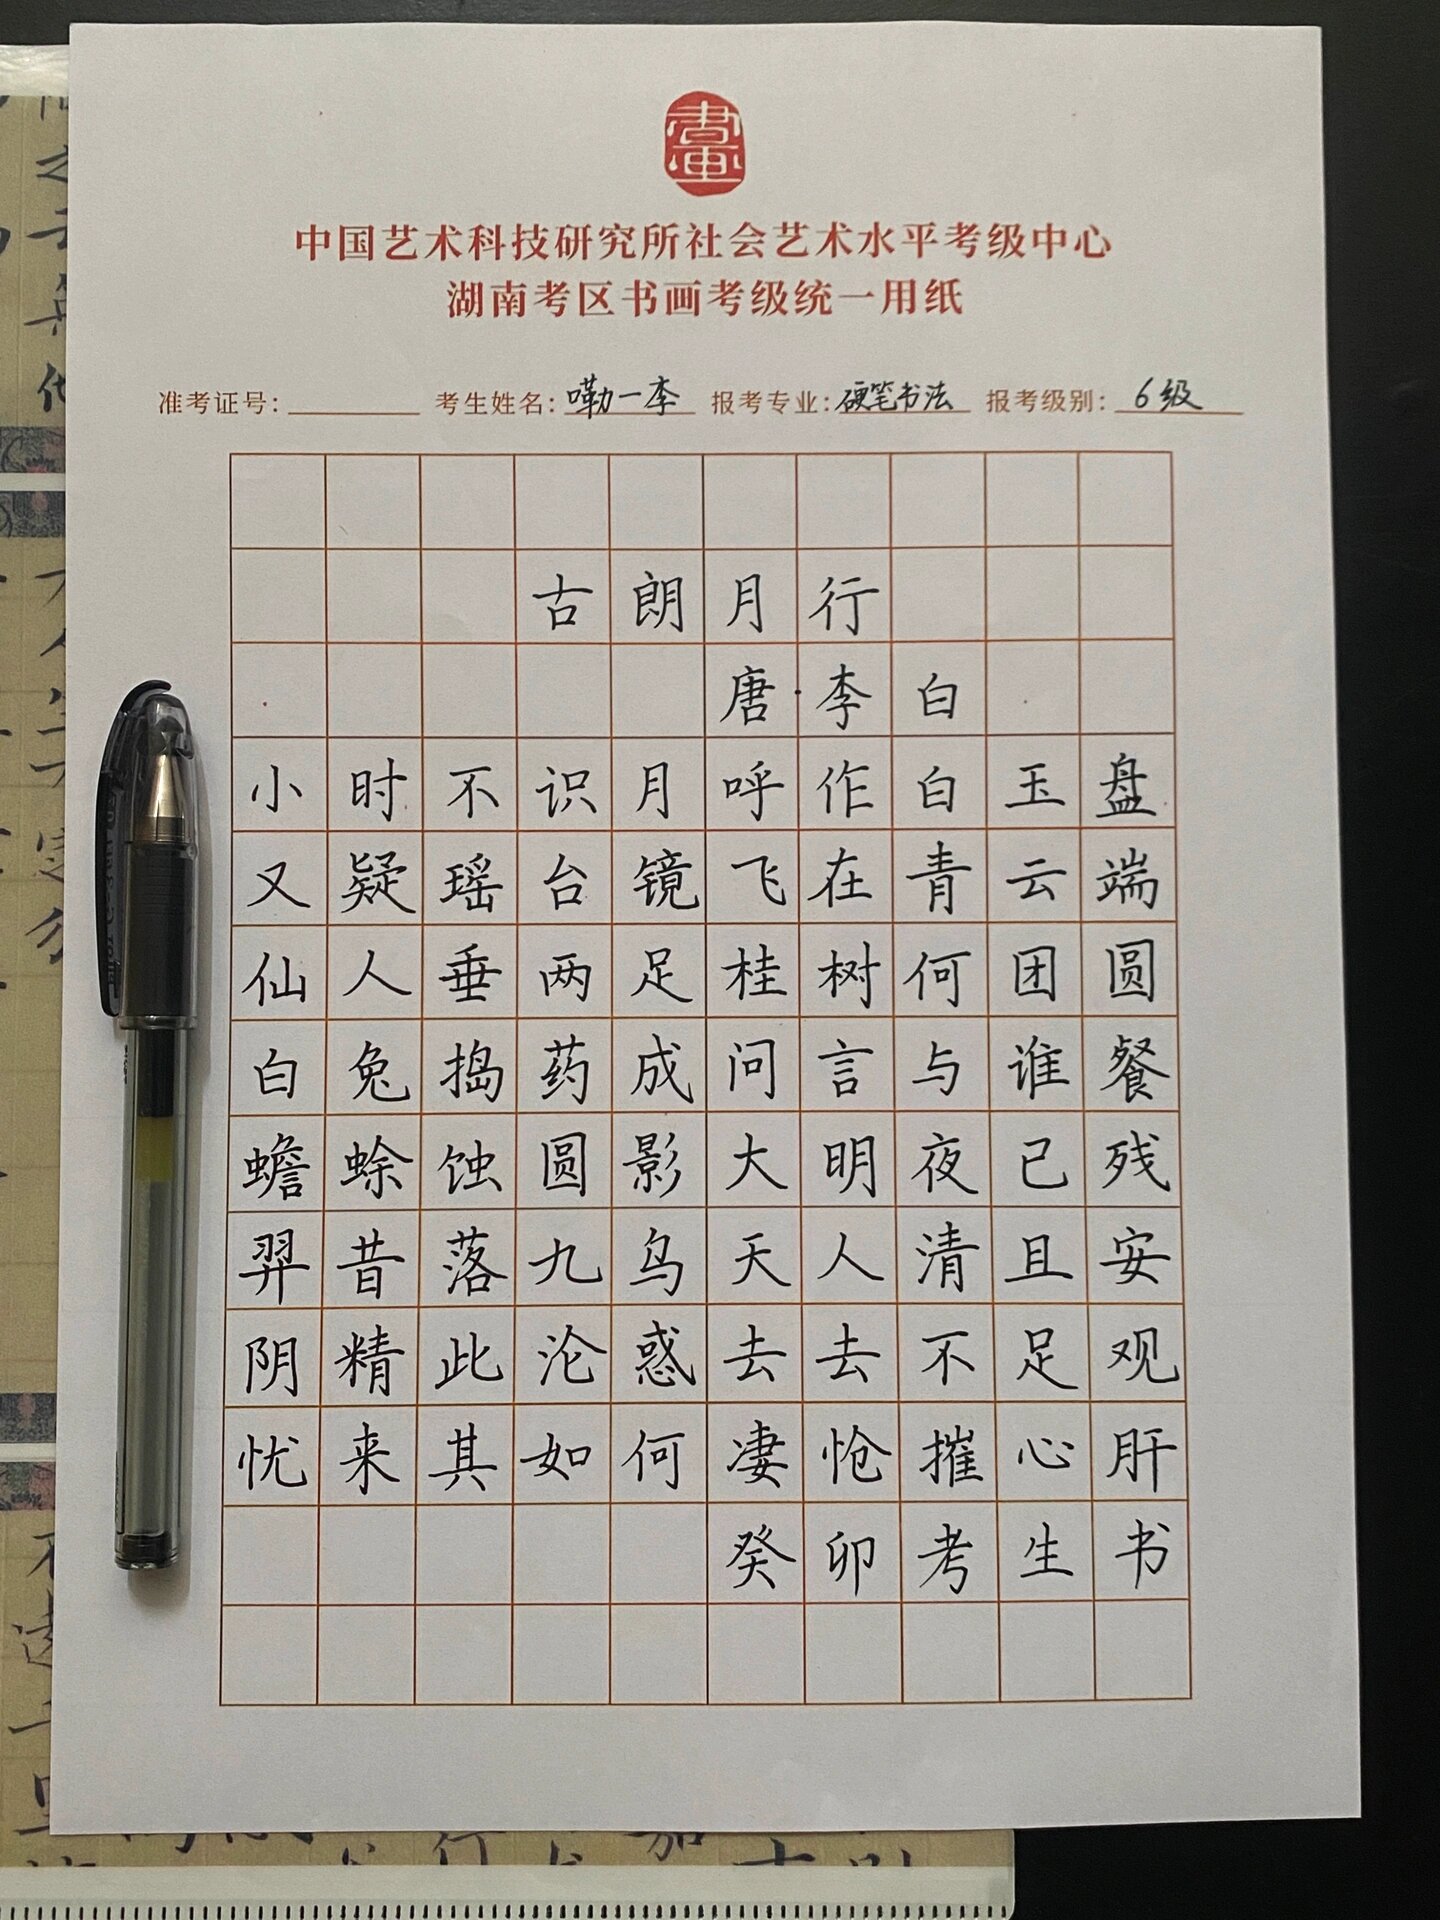 中国艺术科技研究所社会艺术水平考级中心
湖南考区书画考级统一用纸
准考证号: 考生姓名: 嘞一李 报考专业: 硬笔书法 报考级别: 6级
古朗月行
唐·李白
小时不识月呼作白玉盘
又疑瑶台镜飞在青云端
仙人垂两足桂树何团圆
白兔捣药成问言与谁餐
蟾蜍蚀圆影大明夜已残
羿昔落九乌天人清且安
阴精此沦惑去去不足观
忧来其如何凄怆摧心肝
癸卯考生书